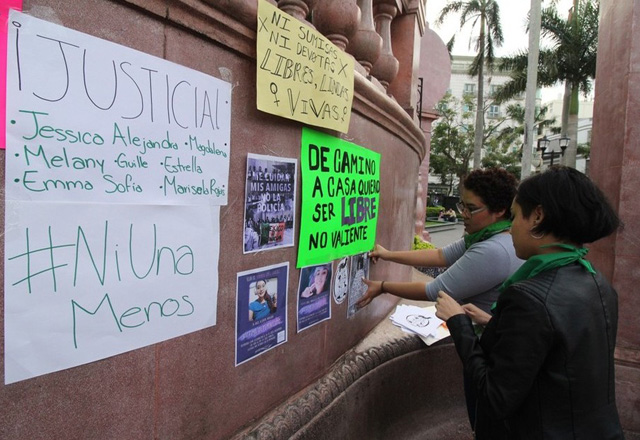 ¡JUSTICIA!
Jessica Alejandra · Magdalena
· Melany · Guille · Estrella
· Emma Sofía · Marisela
#NiUna
Menos
NI SUMISAS
NI DEVOTAS
LIBRES, LINDAS
VIVAS
ME CUIDAN
MIS AMIGAS
NO LA
POLICÍA
DE CAMINO
A CASA QUIERO
SER LIBRE
NO VALIENTE